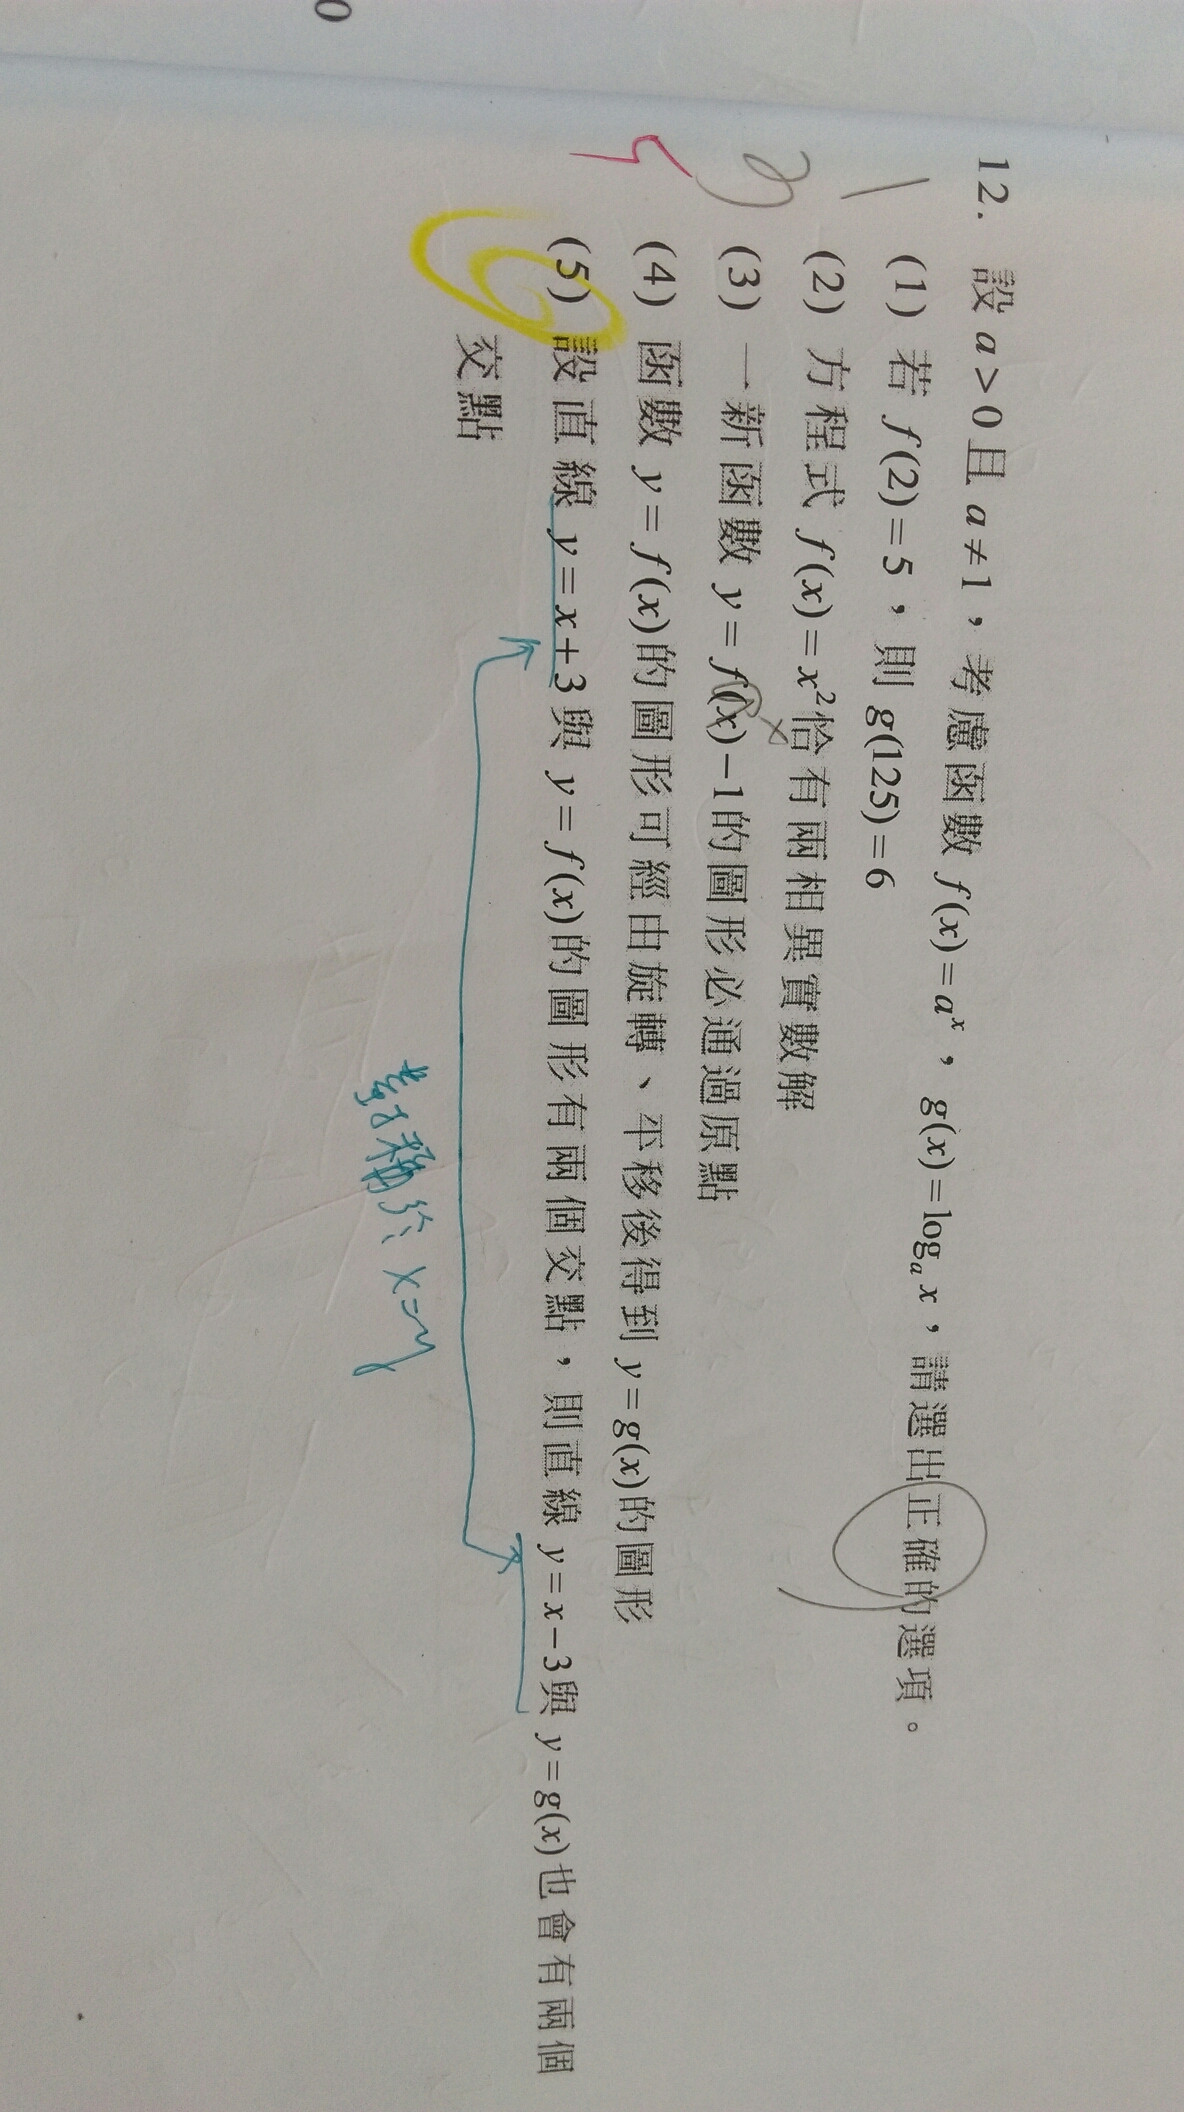 12. 設 a>0且 a≠1，考慮函數 f(x)=aˣ，g(x)=logₐ x，請選出正確的選項。
(1) 若 f(2)=5，則 g(125)=6
(2) 方程式 f(x)=x²恰有兩相異實數解
(3) 一新函數 y=f(x)-1的圖形必通過原點
(4) 函數 y=f(x)的圖形可經由旋轉、平移後得到 y=g(x)的圖形
(5) 設直線 y=x+3與 y=f(x)的圖形有兩個交點，則直線 y=x-3與 y=g(x)也會有兩個
交點
對稱於 x=y